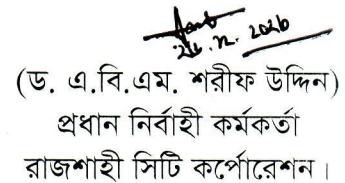 (ড. এ.বি.এম. শরীফ উদ্দিন)
প্রধান নির্বাহী কর্মকর্তা
রাজশাহী সিটি কর্পোরেশন।